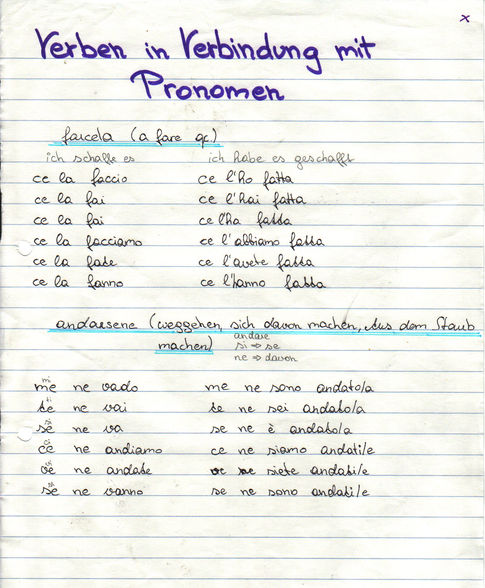 x
Verben in Verbindung mit
Pronomen
farcela (a fare qc)
ich schaffe es ich habe es geschafft
ce la faccio ce l'ho fatta
ce la fai ce l'hai fatta
ce la fai ce l'ha fatta
ce la facciamo ce l'abbiamo fatta
ce la fate ce l'avete fatta
ce la fanno ce l'hanno fatta
andarsene (weggehen, sich davon machen, Aus dem Staub
machen)
andare
si ⇒ se
ne ⇒ davon
mi
me ne vado me ne sono andato/a
ti
te ne vai te ne sei andato/a
si
se ne va se ne è andato/a
ci
ce ne andiamo ce ne siamo andati/e
vi
ve ne andate ve ne siete andati/e
si
se ne vanno se ne sono andati/e